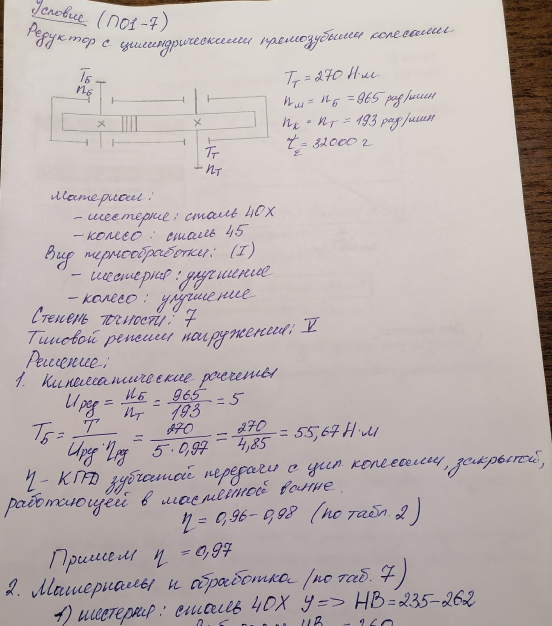 Условие (ПО1-7)
Редуктор с цилиндрическими прямозубыми колесами
Tб
nб
Tт = 270 Н·м
nм = nб = 965 рад/мин
nк = nт = 193 рад/мин
tΣ = 32000 г
Tт
nт
Материал:
- шестерне: сталь 40Х
- колесо: сталь 45
Вид термообработки: (I)
- шестерня: улучшение
- колесо: улучшение
Степень точности: 7
Типовой режим нагружения: V
Решение:
1. Кинематические расчеты
Uред = nб/nт = 965/193 = 5
Tб = T/(Uред·ηред) = 270/(5·0,97) = 270/4,85 = 55,67 Н·м
η - КПД зубчатой передачи с цил колесами, закрытой,
работающей в масленной ванне.
η = 0,96-0,98 (по табл. 2)
Примем η = 0,97
2. Материалы и обработка (по таб. 7)
1) шестерня: сталь 40Х У => HB = 235-262
HB = 260